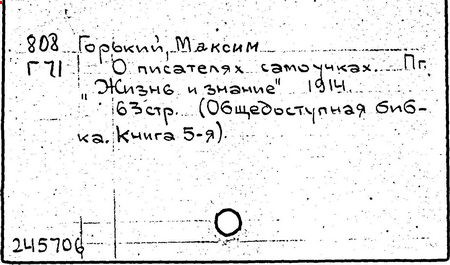 808 Горький, Максим
Г 71 О писателях самоучках. Пг.
"Жизнь и знание" 1914.
63 стр. (Общедоступная биб-
ка. Книга 5-я).
245706